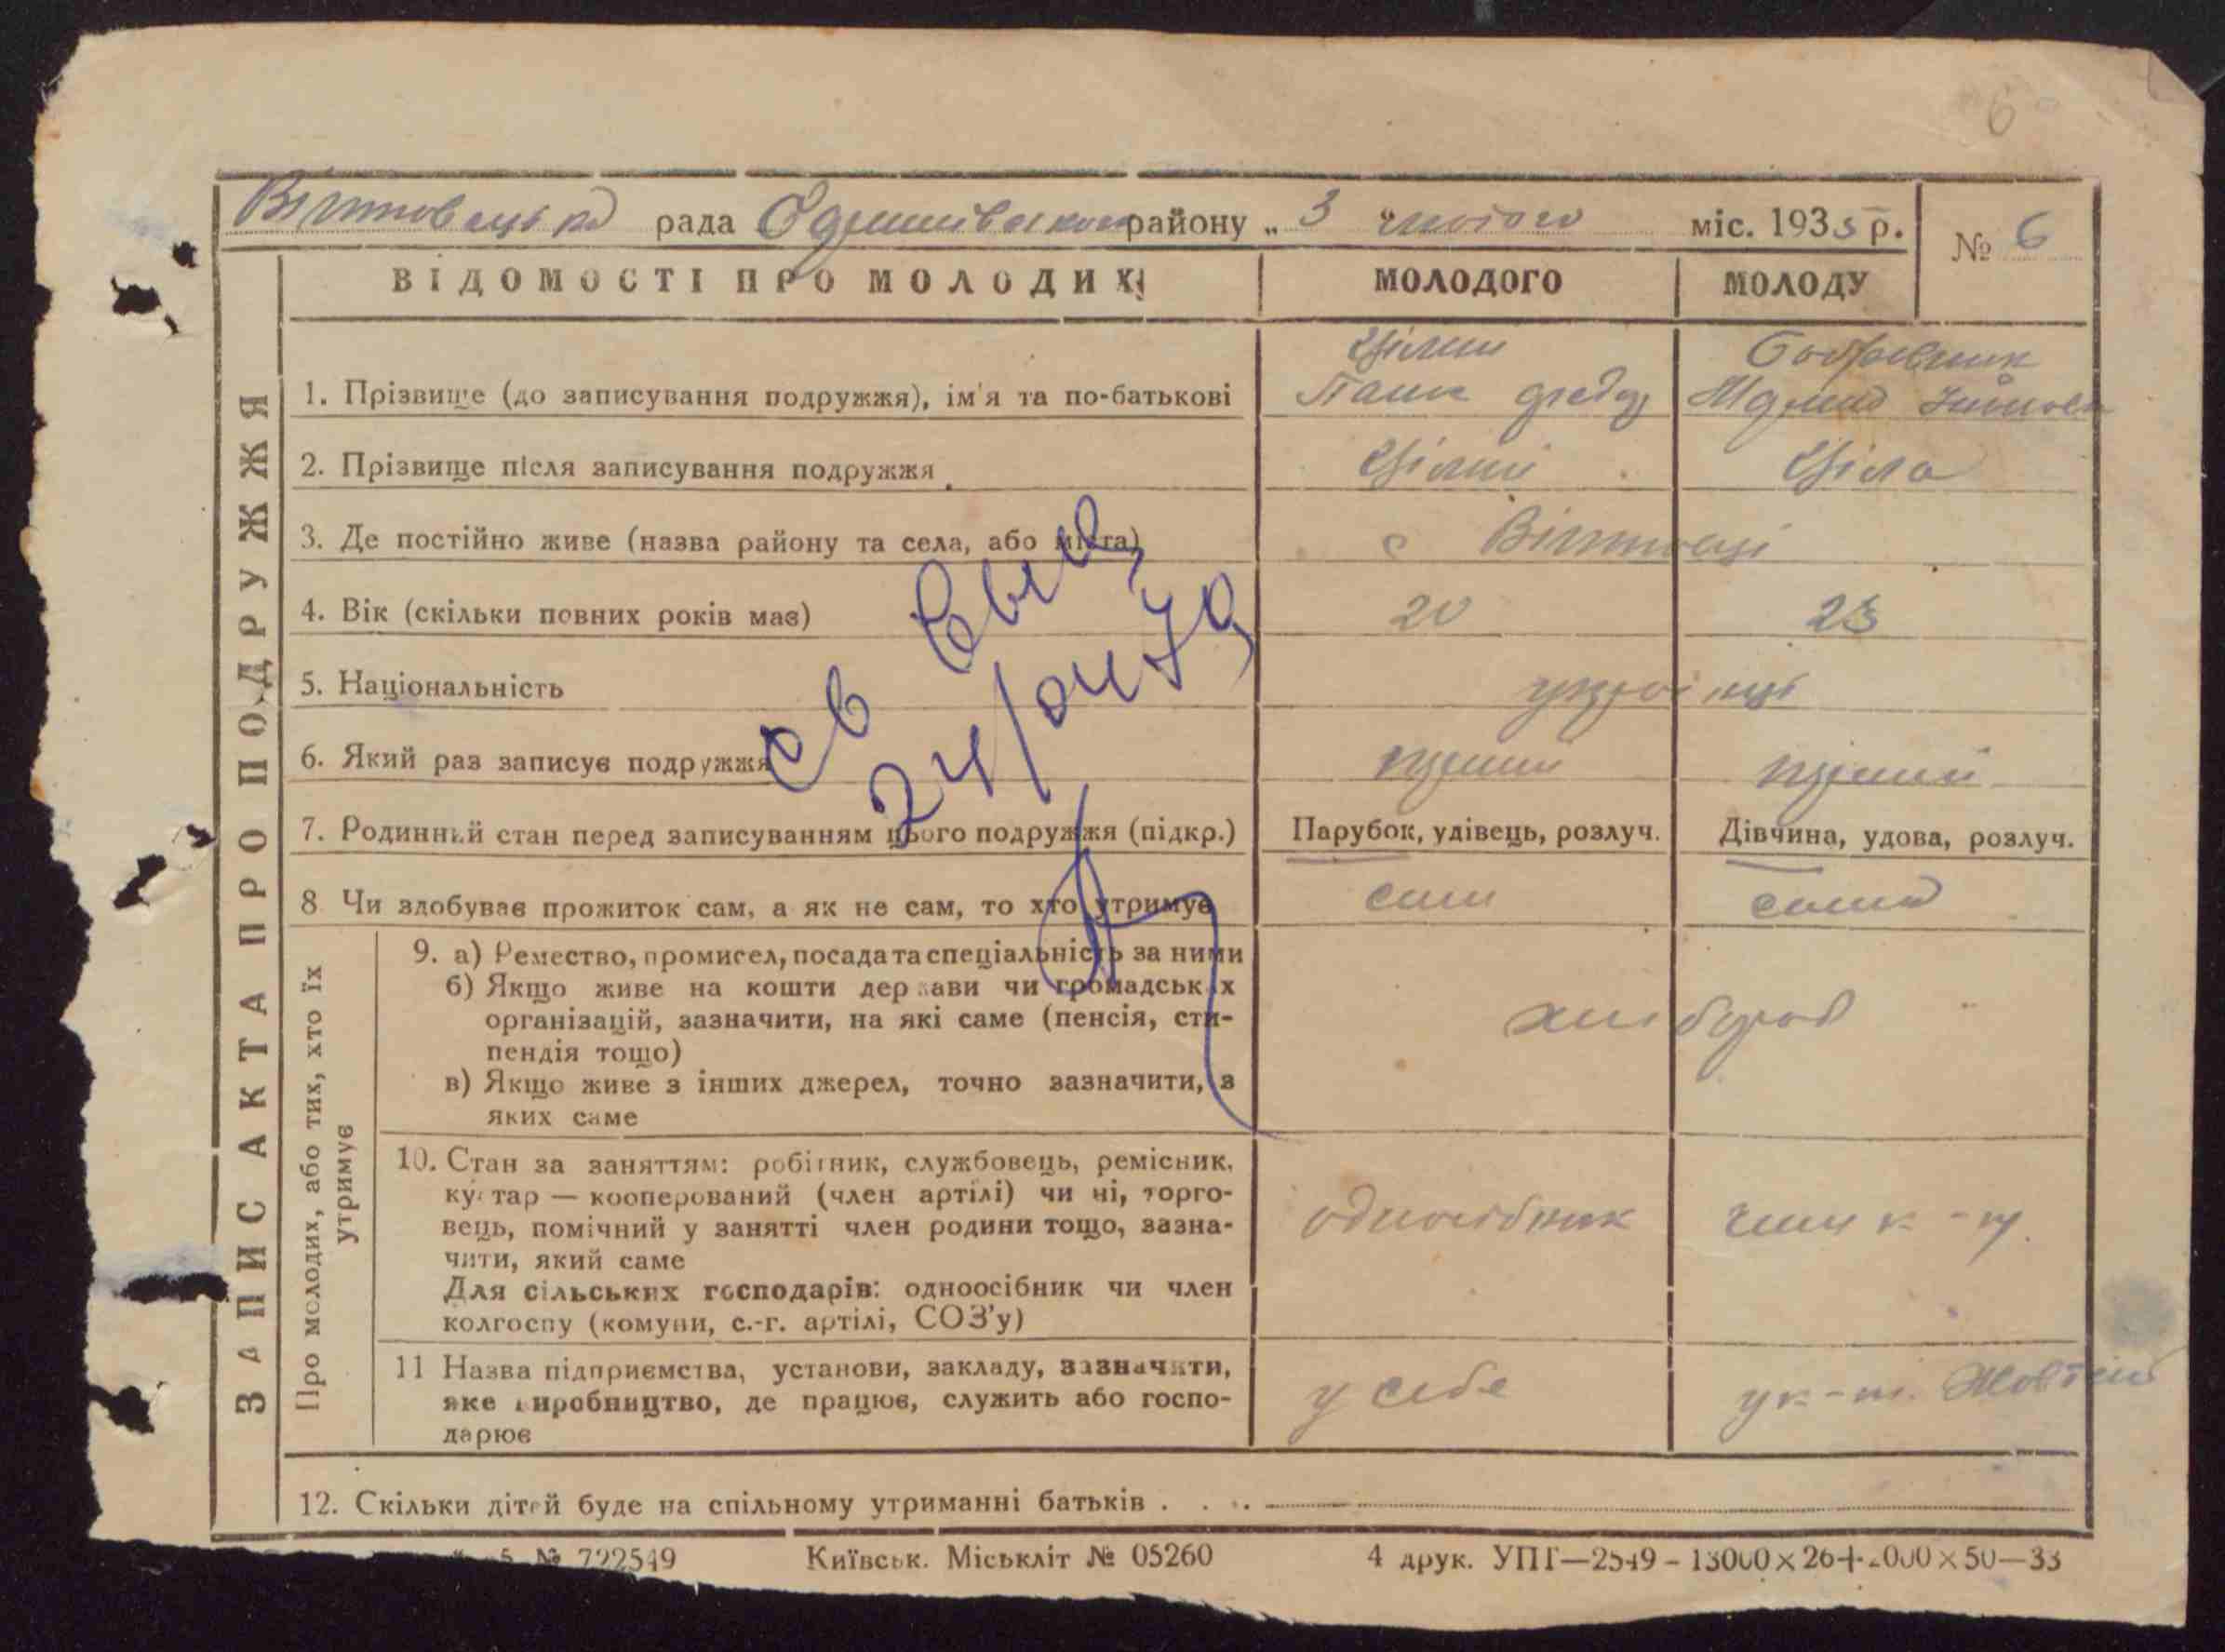 6
Вітовецька рада района „ 3 лютого міс. 1933 р. № 6
ВІДОМОСТІ ПРО МОЛОДИХ МОЛОДОГО МОЛОДУ
ЗАПИС АКТА ПРО ПОДРУЖЖЯ
Цілий
1. Прізвище (до записування подружжя), ім'я та по-батькові
2. Прізвище після записування подружжя Цілий Ціла
3. Де постійно живе (назва району та села, або міста) с
4. Вік (скільки повних років має) 20 23
5. Національність українці
6. Який раз записує подружжя перший перший
7. Родинний стан перед записуванням цього подружжя (підкр.) Парубок, удівець, розлуч. Дівчина, удова, розлуч.
8 Чи здобуває прожиток сам, а як не сам, то хто утримує сам сама
Про молодих, або тих, хто їх утримує
9. а) Ремество, промисел, посада та спеціальність за ними
б) Якщо живе на кошти держави чи громадських
організацій, зазначити, на які саме (пенсія, сти-
пендія тощо)
в) Якщо живе з інших джерел, точно зазначити, з
яких саме
хлібороб
10. Стан за заняттям: робітник, службовець, ремісник,
кустар — кооперований (член артілі) чи ні, торго-
вець, помічний у занятті член родини тощо, зазна-
чити, який саме
Для сільських господарів: одноосібник чи член
колгоспу (комуни, с.-г. артілі, СОЗ'у)
одноосібник член к-гу.
11 Назва підприємства, установи, закладу, зазначити,
яке виробництво, де працює, служить або госпо-
дарює
у себе у к-гі. Жовтень
12. Скільки дітей буде на спільному утриманні батьків . . . .
св выд
24/04 79
№ 722549 Київськ. Міськліт № 05260 4 друк. УПГ—2549 – 13000×26+2000×50—33